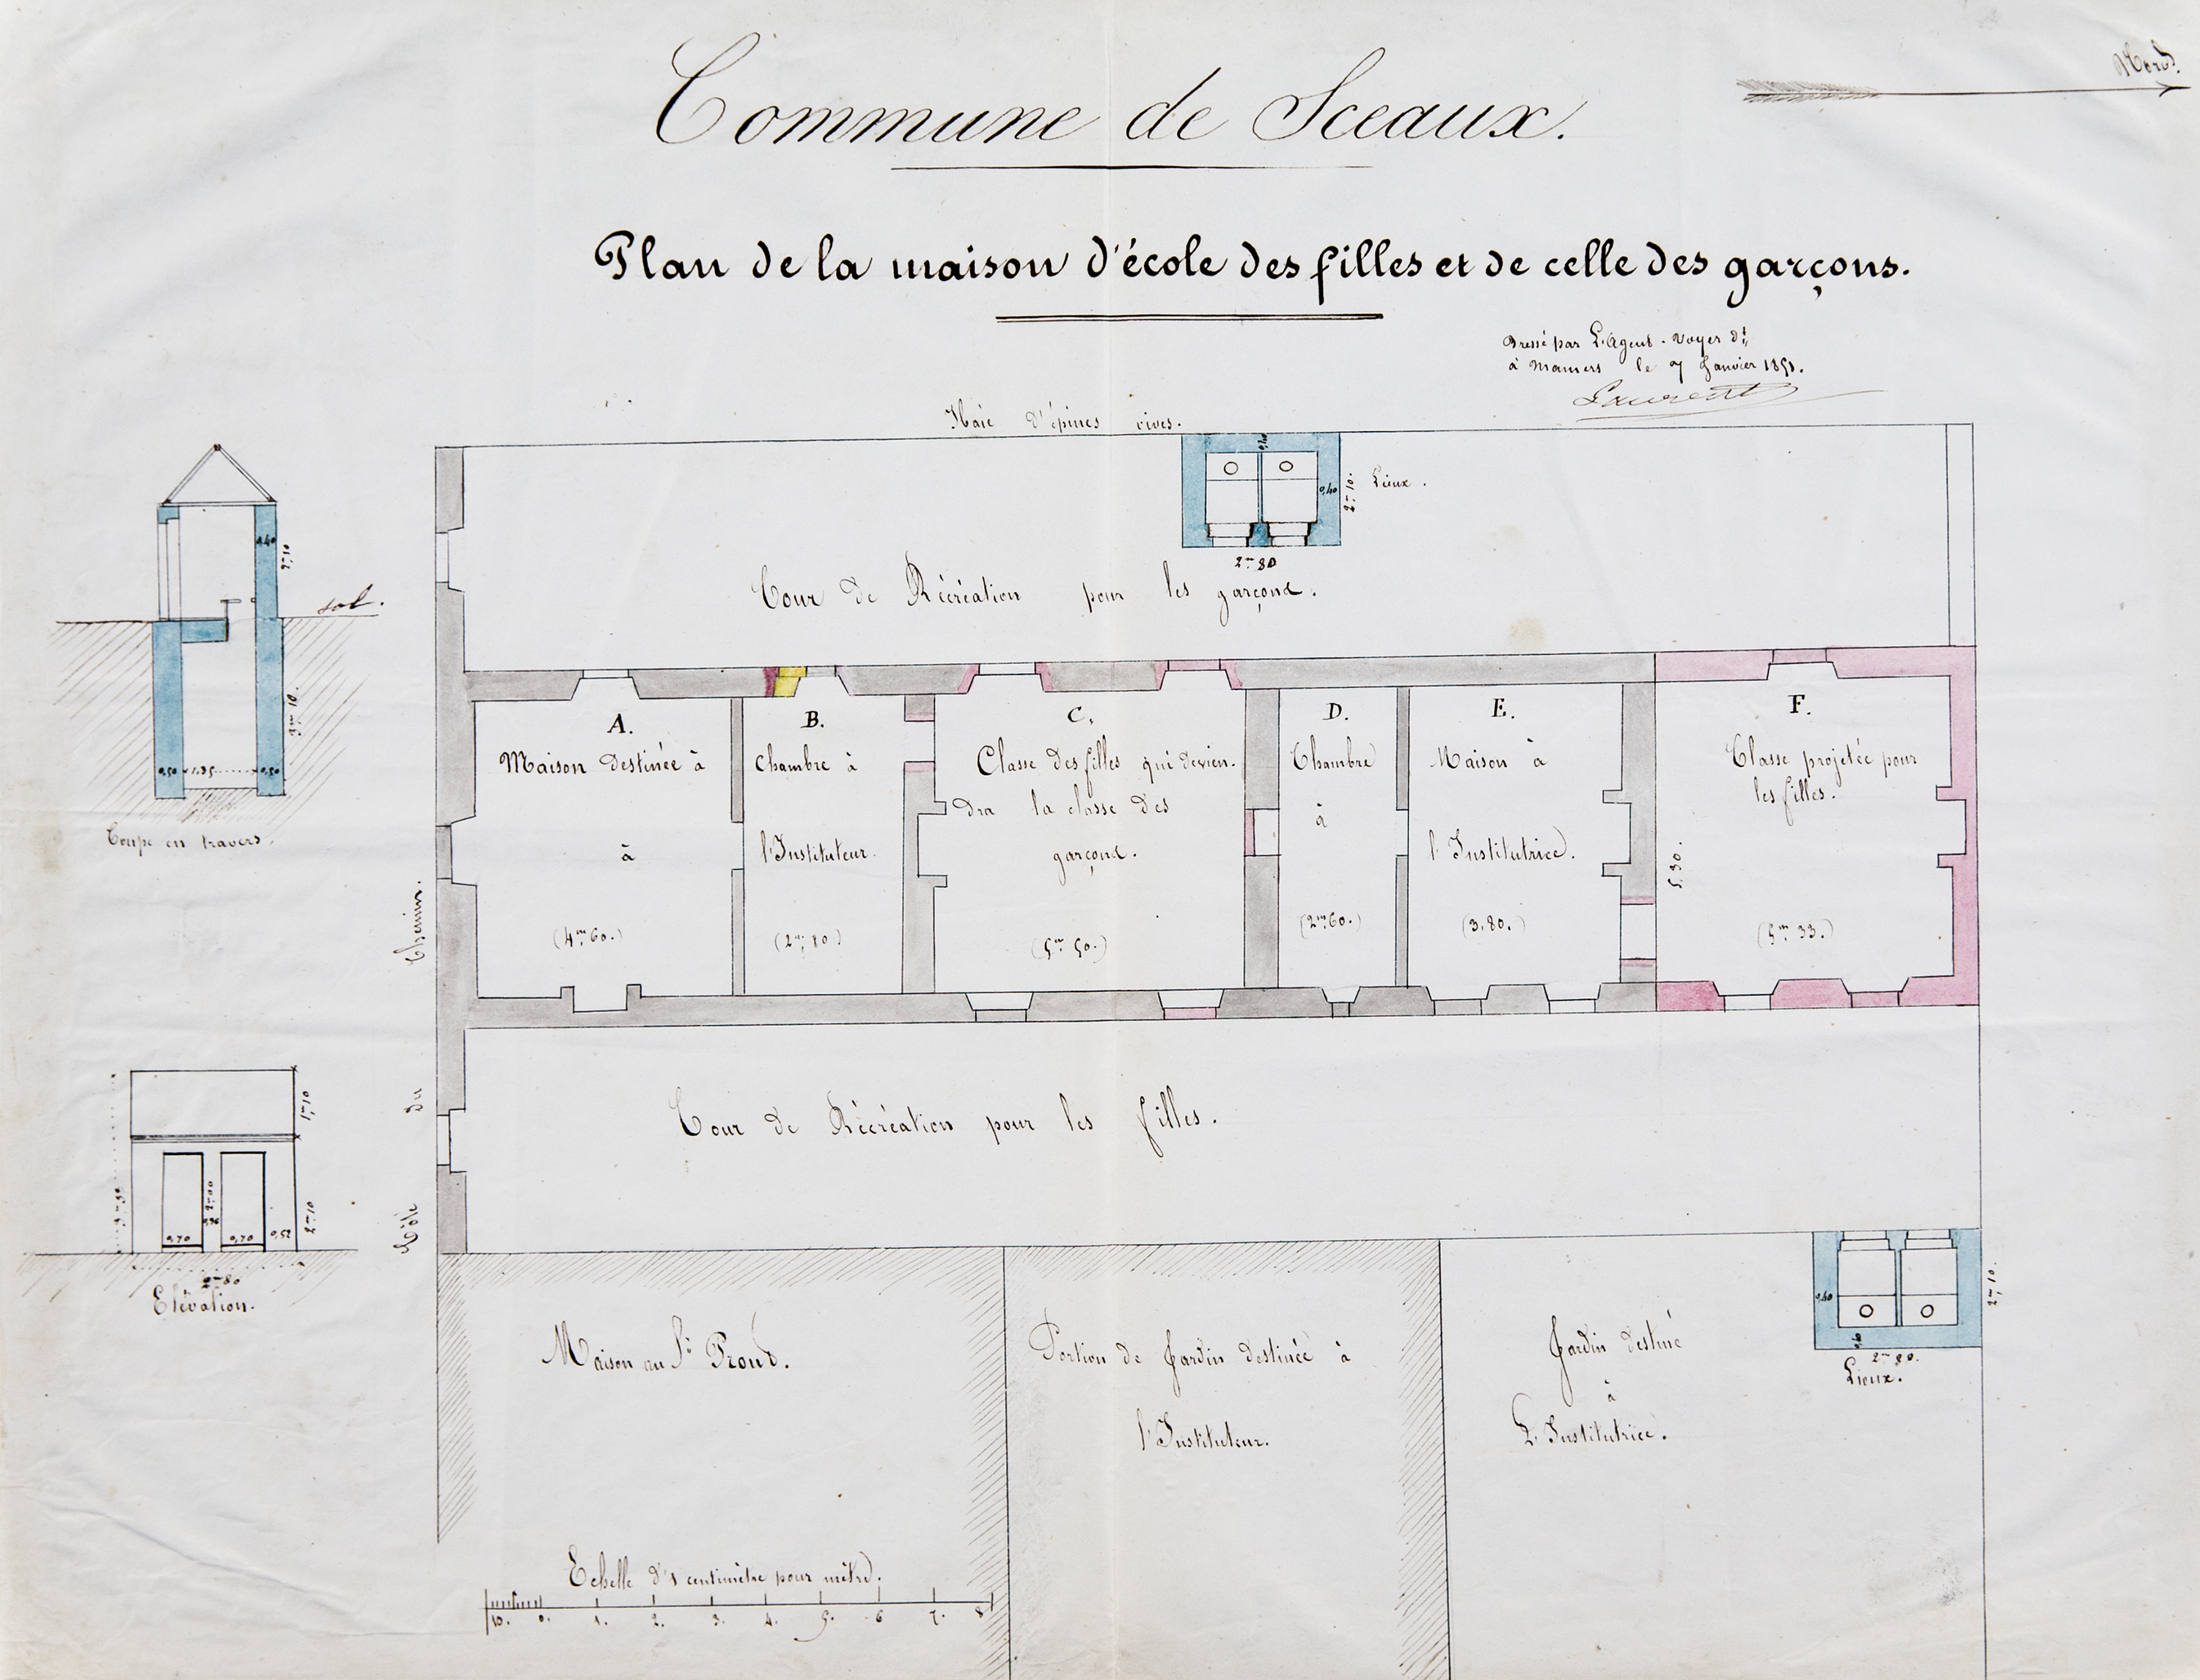 Nord.
Commune de Sceaux.
Plan de la maison d'école des filles et de celle des garçons.
Dressé par L'Agent-Voyer dt
à Mamers le 7 Janvier 1851.
Laurent
Haie d'épines vives.
0,40
0,40
2m 10.
Lieux.
2m 80
Cour de Récréation pour les garçons.
0,40
2m 10
sol.
3m 10.
0,50 1,35 0,50
Coupe en travers.
A.
Maison destinée à
à
(4m 60.)
B.
Chambre à
l'Instituteur.
(2m, 80)
C.
Classe des filles qui devien-
dra la classe des
garçons.
(5m 50.)
D.
Chambre
à
(2m 60.)
E.
Maison à
l'Institutrice.
(3,80.)
F.
Classe projetée pour
les filles.
5,30.
(5m 33.)
Côté du Chemin.
Cour de Récréation pour les filles.
1m,10
2m 00
2m 10
0,70
0,70
0,52
2m 80
Elévation.
Maison au Sr. Prout.
Portion de Jardin destinée à
l'Instituteur.
Jardin destiné
à
L'Institutrice.
0,40
2m 10.
2m 80.
Lieux.
Echelle d'1 centimètre pour mètre.
10. 0. 1. 2. 3. 4. 5. 6 7. 8